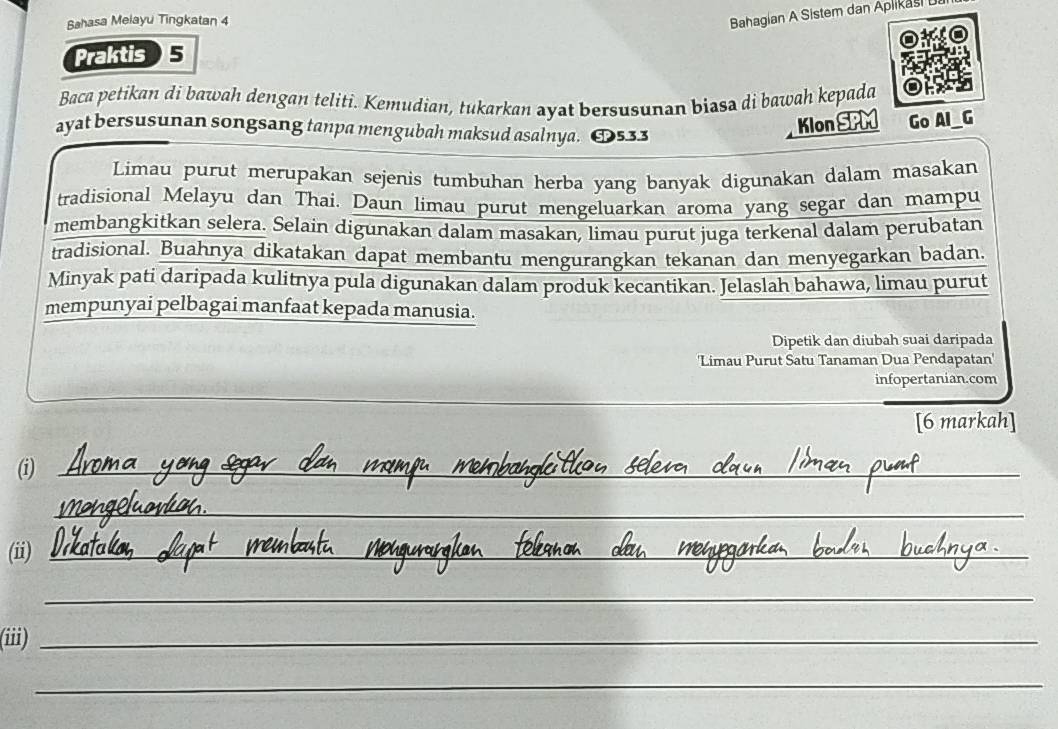 Bahasa Melayu Tingkatan 4
Bahagian A Sistem dan Aplikasi
Praktis 5
Baca petikan di bawah dengan teliti. Kemudian, tukarkan ayat bersusunan biasa di bawah kepada
ayat bersusunan songsang tanpa mengubah maksud asalnya. SP 5.3.3
Klon SPM Go AI_G
Limau purut merupakan sejenis tumbuhan herba yang banyak digunakan dalam masakan
tradisional Melayu dan Thai. Daun limau purut mengeluarkan aroma yang segar dan mampu
membangkitkan selera. Selain digunakan dalam masakan, limau purut juga terkenal dalam perubatan
tradisional. Buahnya dikatakan dapat membantu mengurangkan tekanan dan menyegarkan badan.
Minyak pati daripada kulitnya pula digunakan dalam produk kecantikan. Jelaslah bahawa, limau purut
mempunyai pelbagai manfaat kepada manusia.
Dipetik dan diubah suai daripada
'Limau Purut Satu Tanaman Dua Pendapatan'
infopertanian.com
[6 markah]
(i) Aroma yang segar dan mampu membangkitkan selera daun limau purut
mengeluarkan.
(ii) Dikatakan dapat membantu mengurangkan tekanan dan menyegarkan badan buahnya.
(iii)